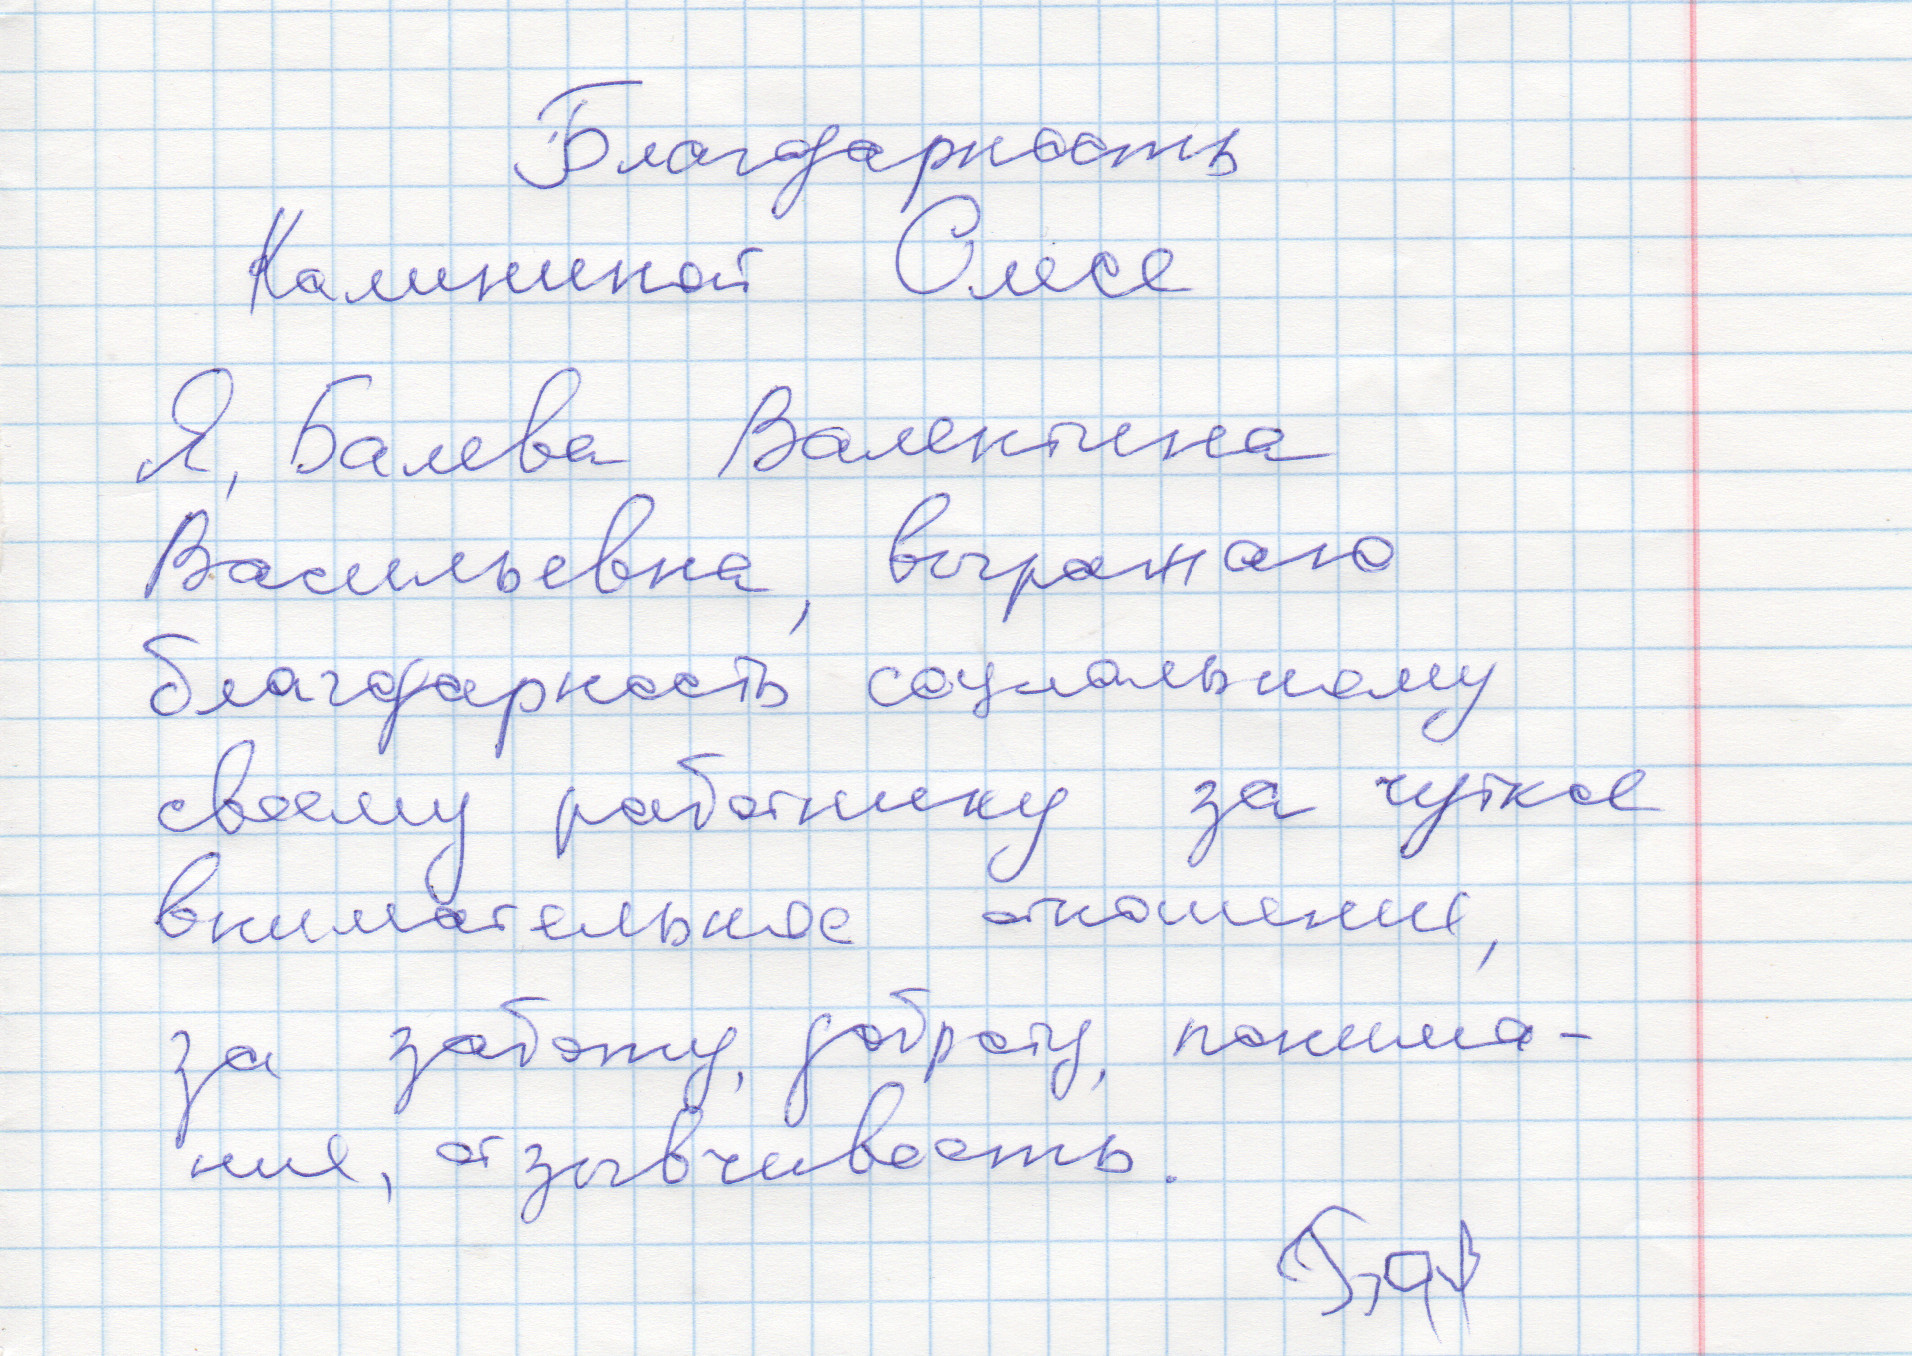 Благдарность
Калининой Олесе
Я, Балева Валентина
Васильевна, выражаю
благдарность социальному
своему работнику за чуткое
внимательное отношение,
за заботу, доброту, понима-
ние, отзывчивость.